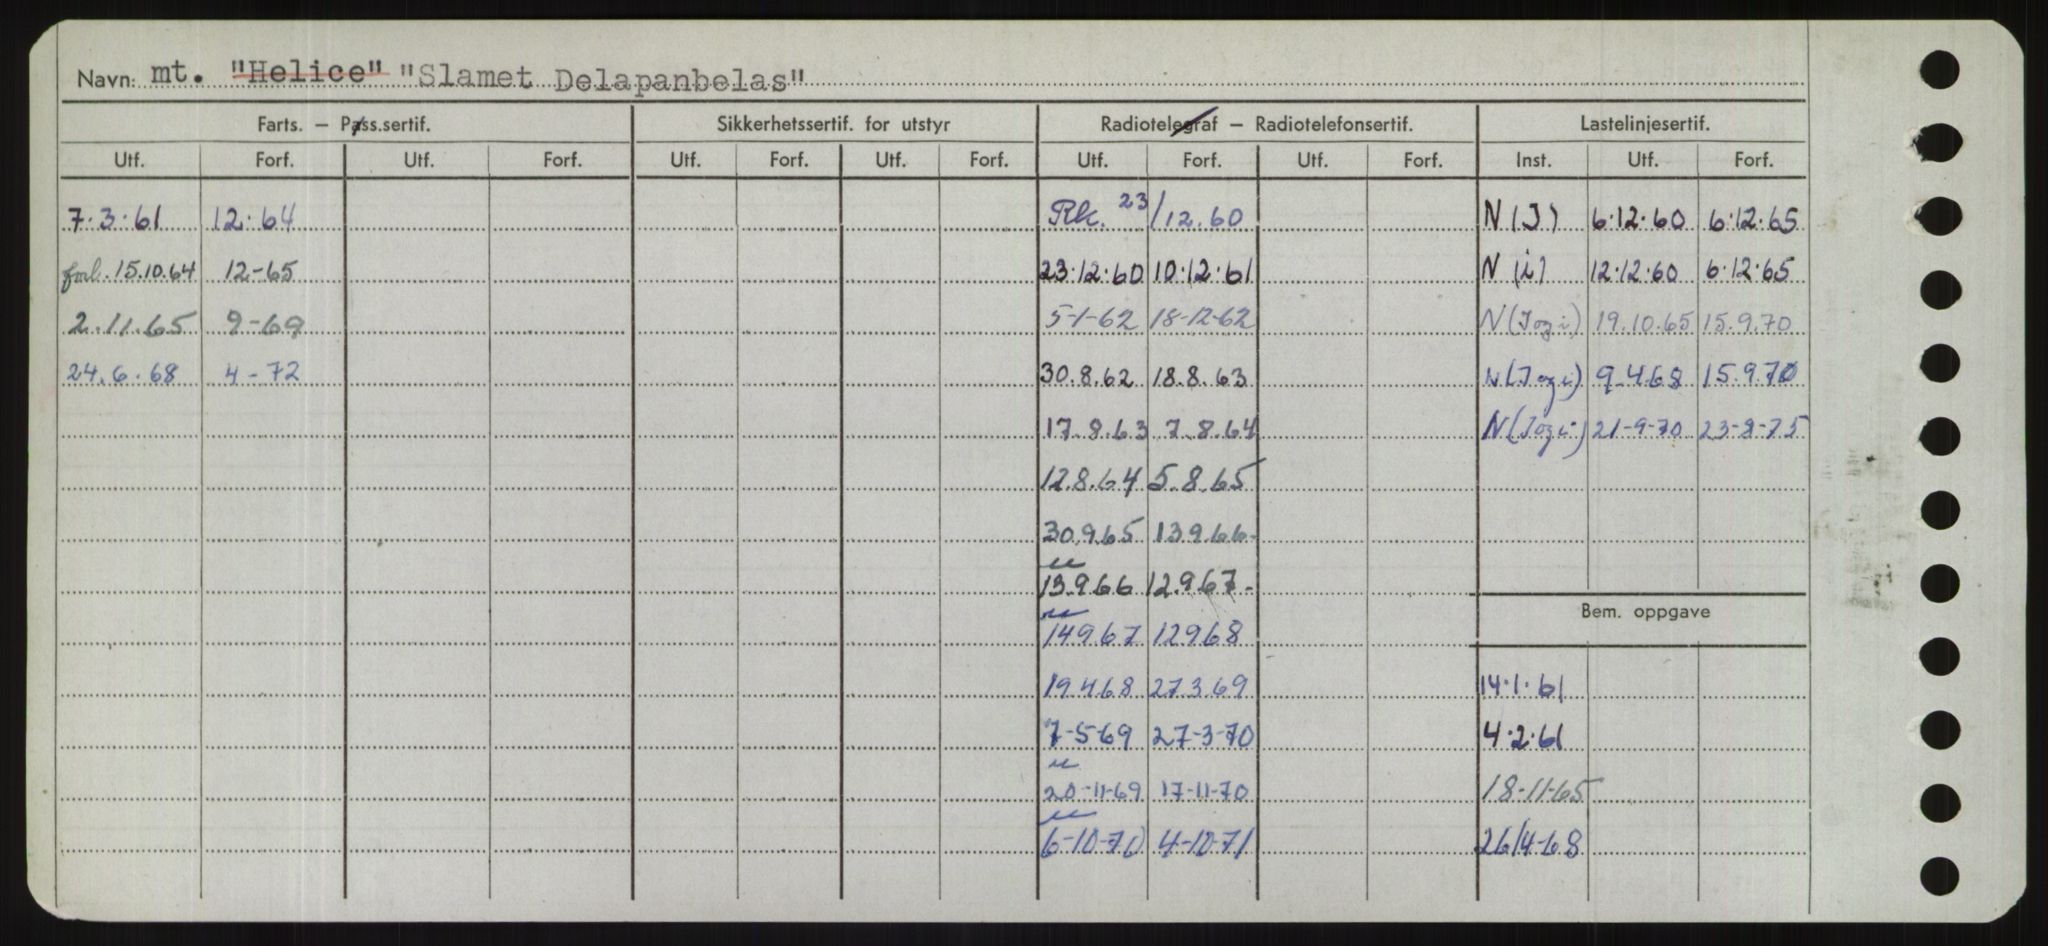 Navn: mt. "Helice" "Slamet Delapanbelas"
Farts. — Pass.sertif. Sikkerhetssertif. for utstyr Radiotelegraf — Radiotelefonsertif. Lastelinjesertif.
Utf. Forf. Utf. Forf. Utf. Forf. Utf. Forf. Utf. Forf. Utf. Forf. Inst. Utf. Forf.
7.3.61 12.64 Rk. 23/12.60 N(J) 6.12.60 6.12.65
forl. 15.10.64 12-65 23.12.60 10.12.61 N(i) 12.12.60 6.12.65
2.11.65 9-69 5-1-62 18-12-62 N(Jogi) 19.10.65 15.9.70
24.6.68 4-72 30.8.62 18.8.63 N(Jogi) 9.4.68 15.9.70
17.8.63 7.8.64 N(Jogi) 21-9-70 23-8-75
12.8.64 5.8.65
30.9.65 13.9.66-
13.9.66 12.9.67-
Bem. oppgave
14.9.67 12.9.68
19.4.68 27.3.69 14.1.61
7-5-69 27-3-70 4.2.61
20-11-69 17-11-70 18-11-65
6-10-70 4-10-71 26/4-68